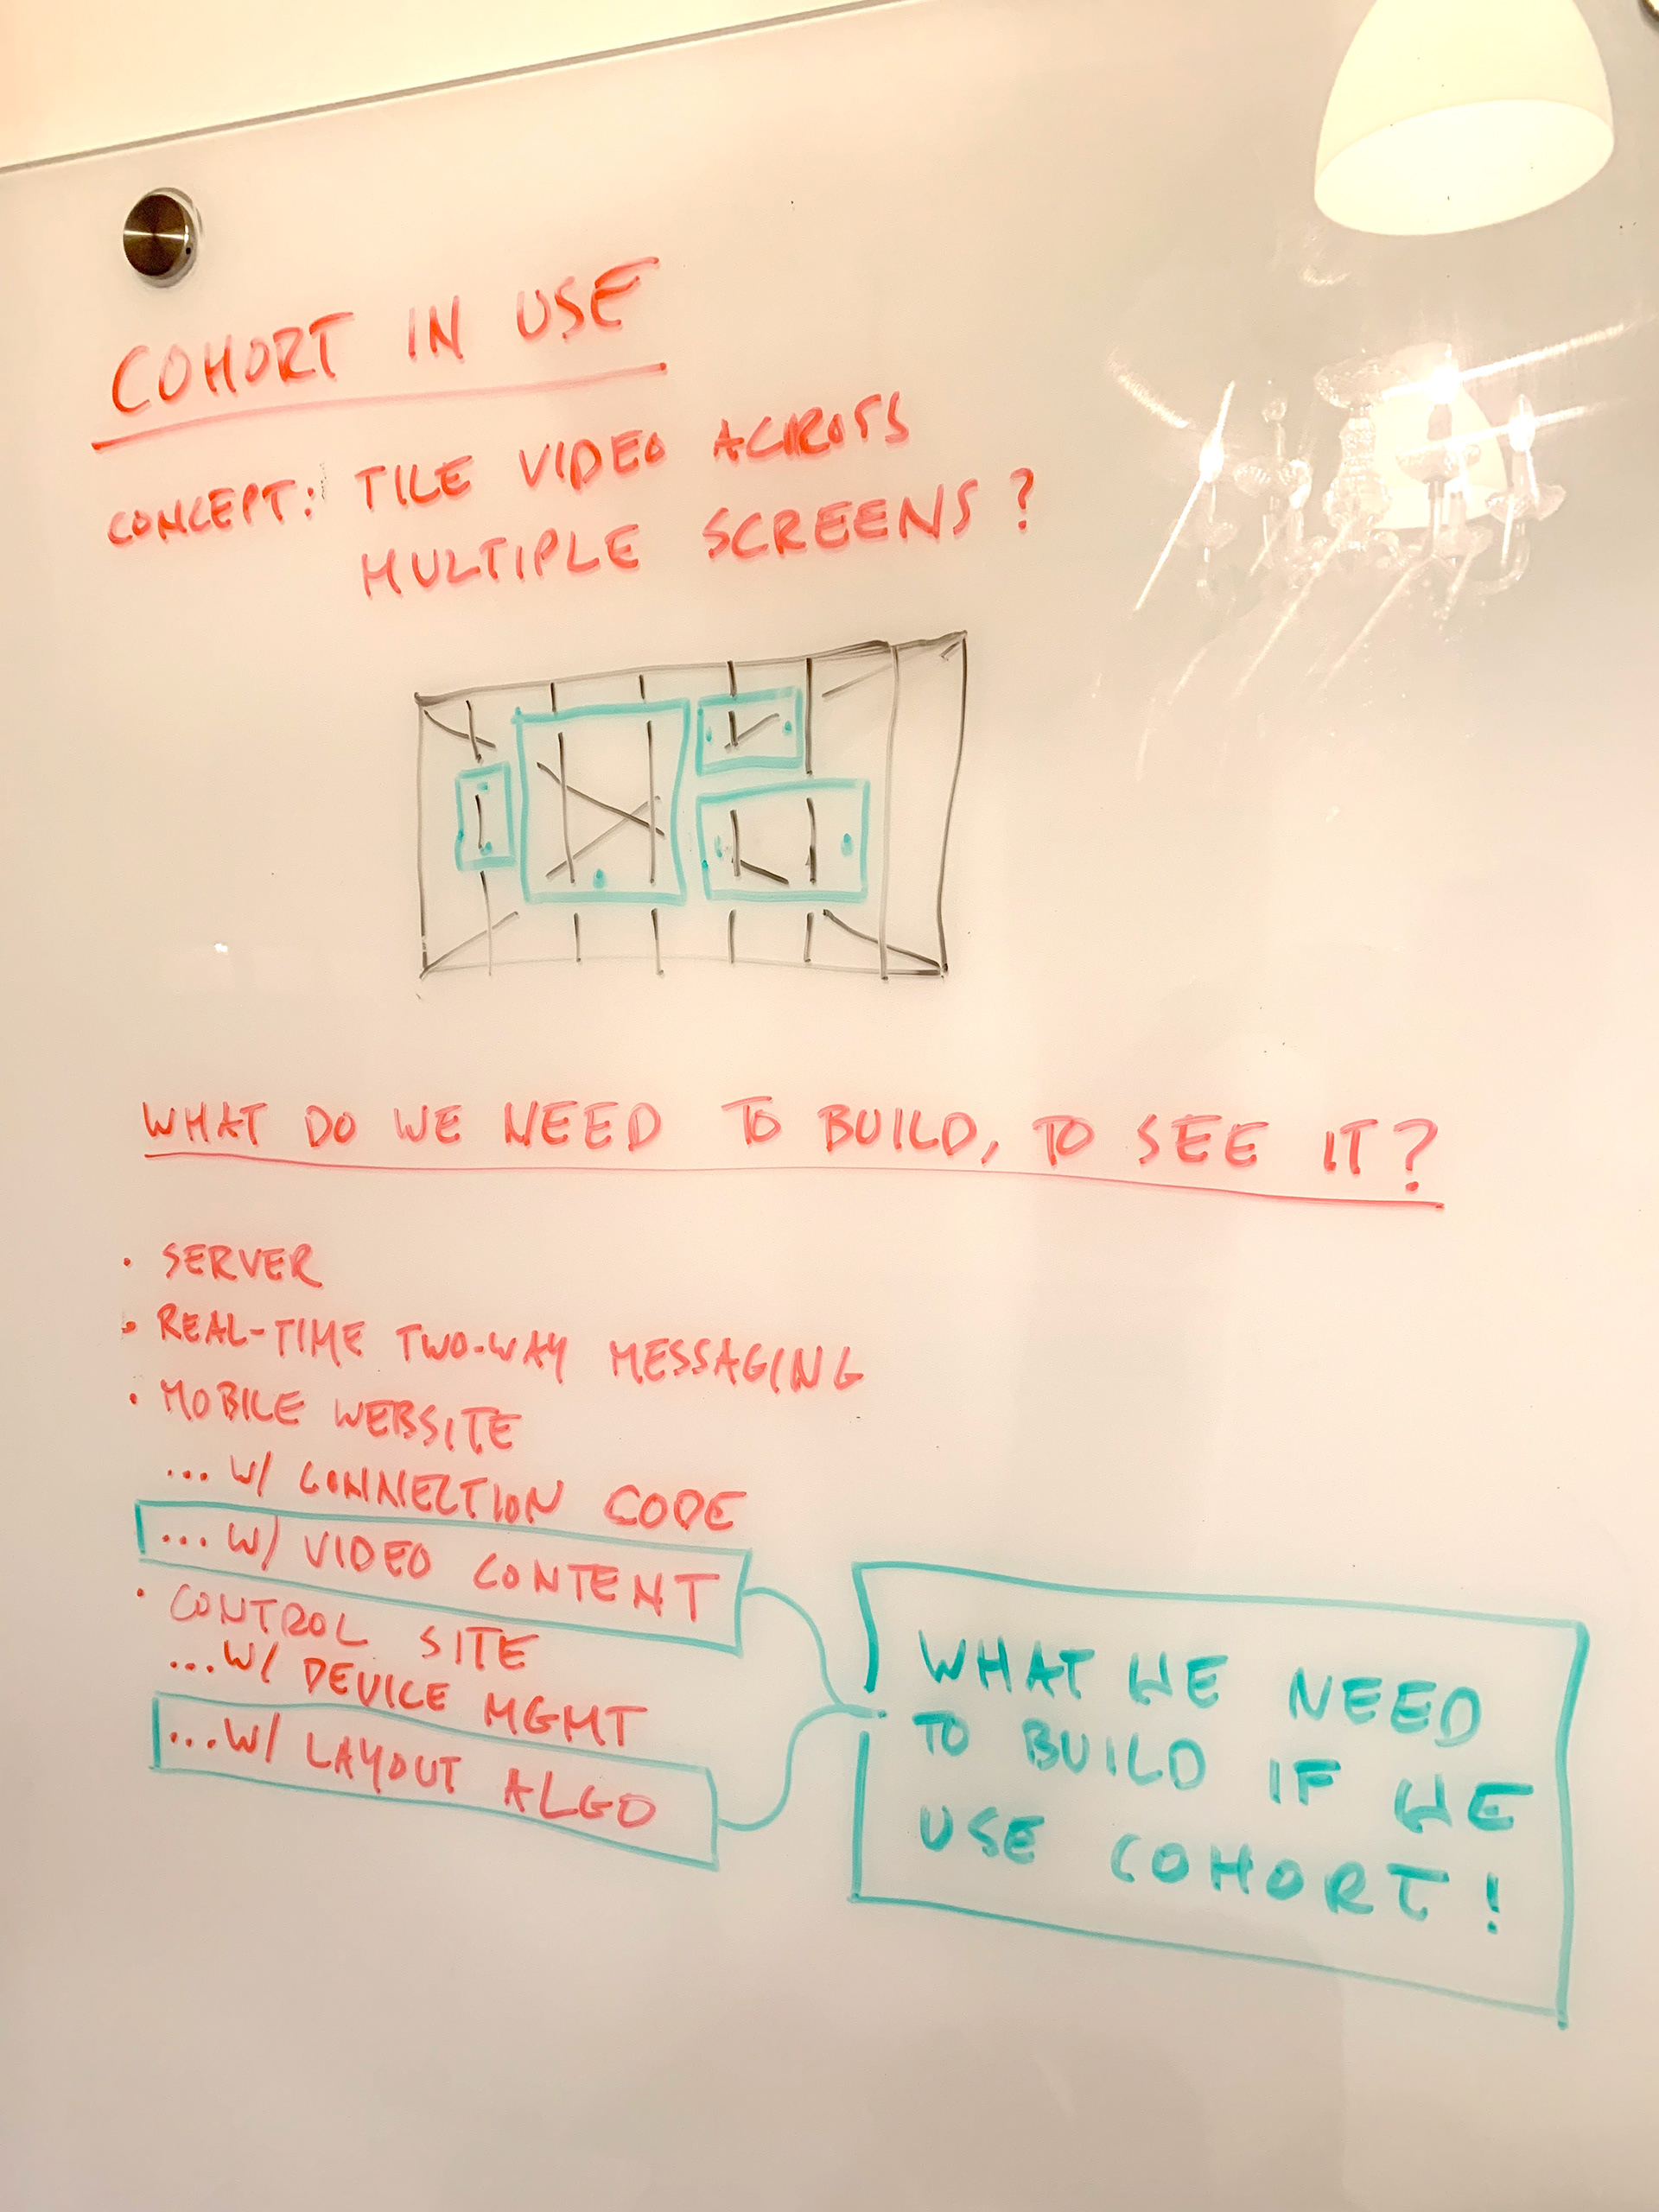 COHORT IN USE
CONCEPT: TILE VIDEO ACROSS
MULTIPLE SCREENS?
WHAT DO WE NEED TO BUILD, TO SEE IT?
· SERVER
· REAL-TIME TWO-WAY MESSAGING
· MOBILE WEBSITE
... W/ CONNECTION CODE
... W/ VIDEO CONTENT
· CONTROL SITE
... W/ DEVICE MGMT
... W/ LAYOUT ALGO
WHAT WE NEED
TO BUILD IF WE
USE COHORT!